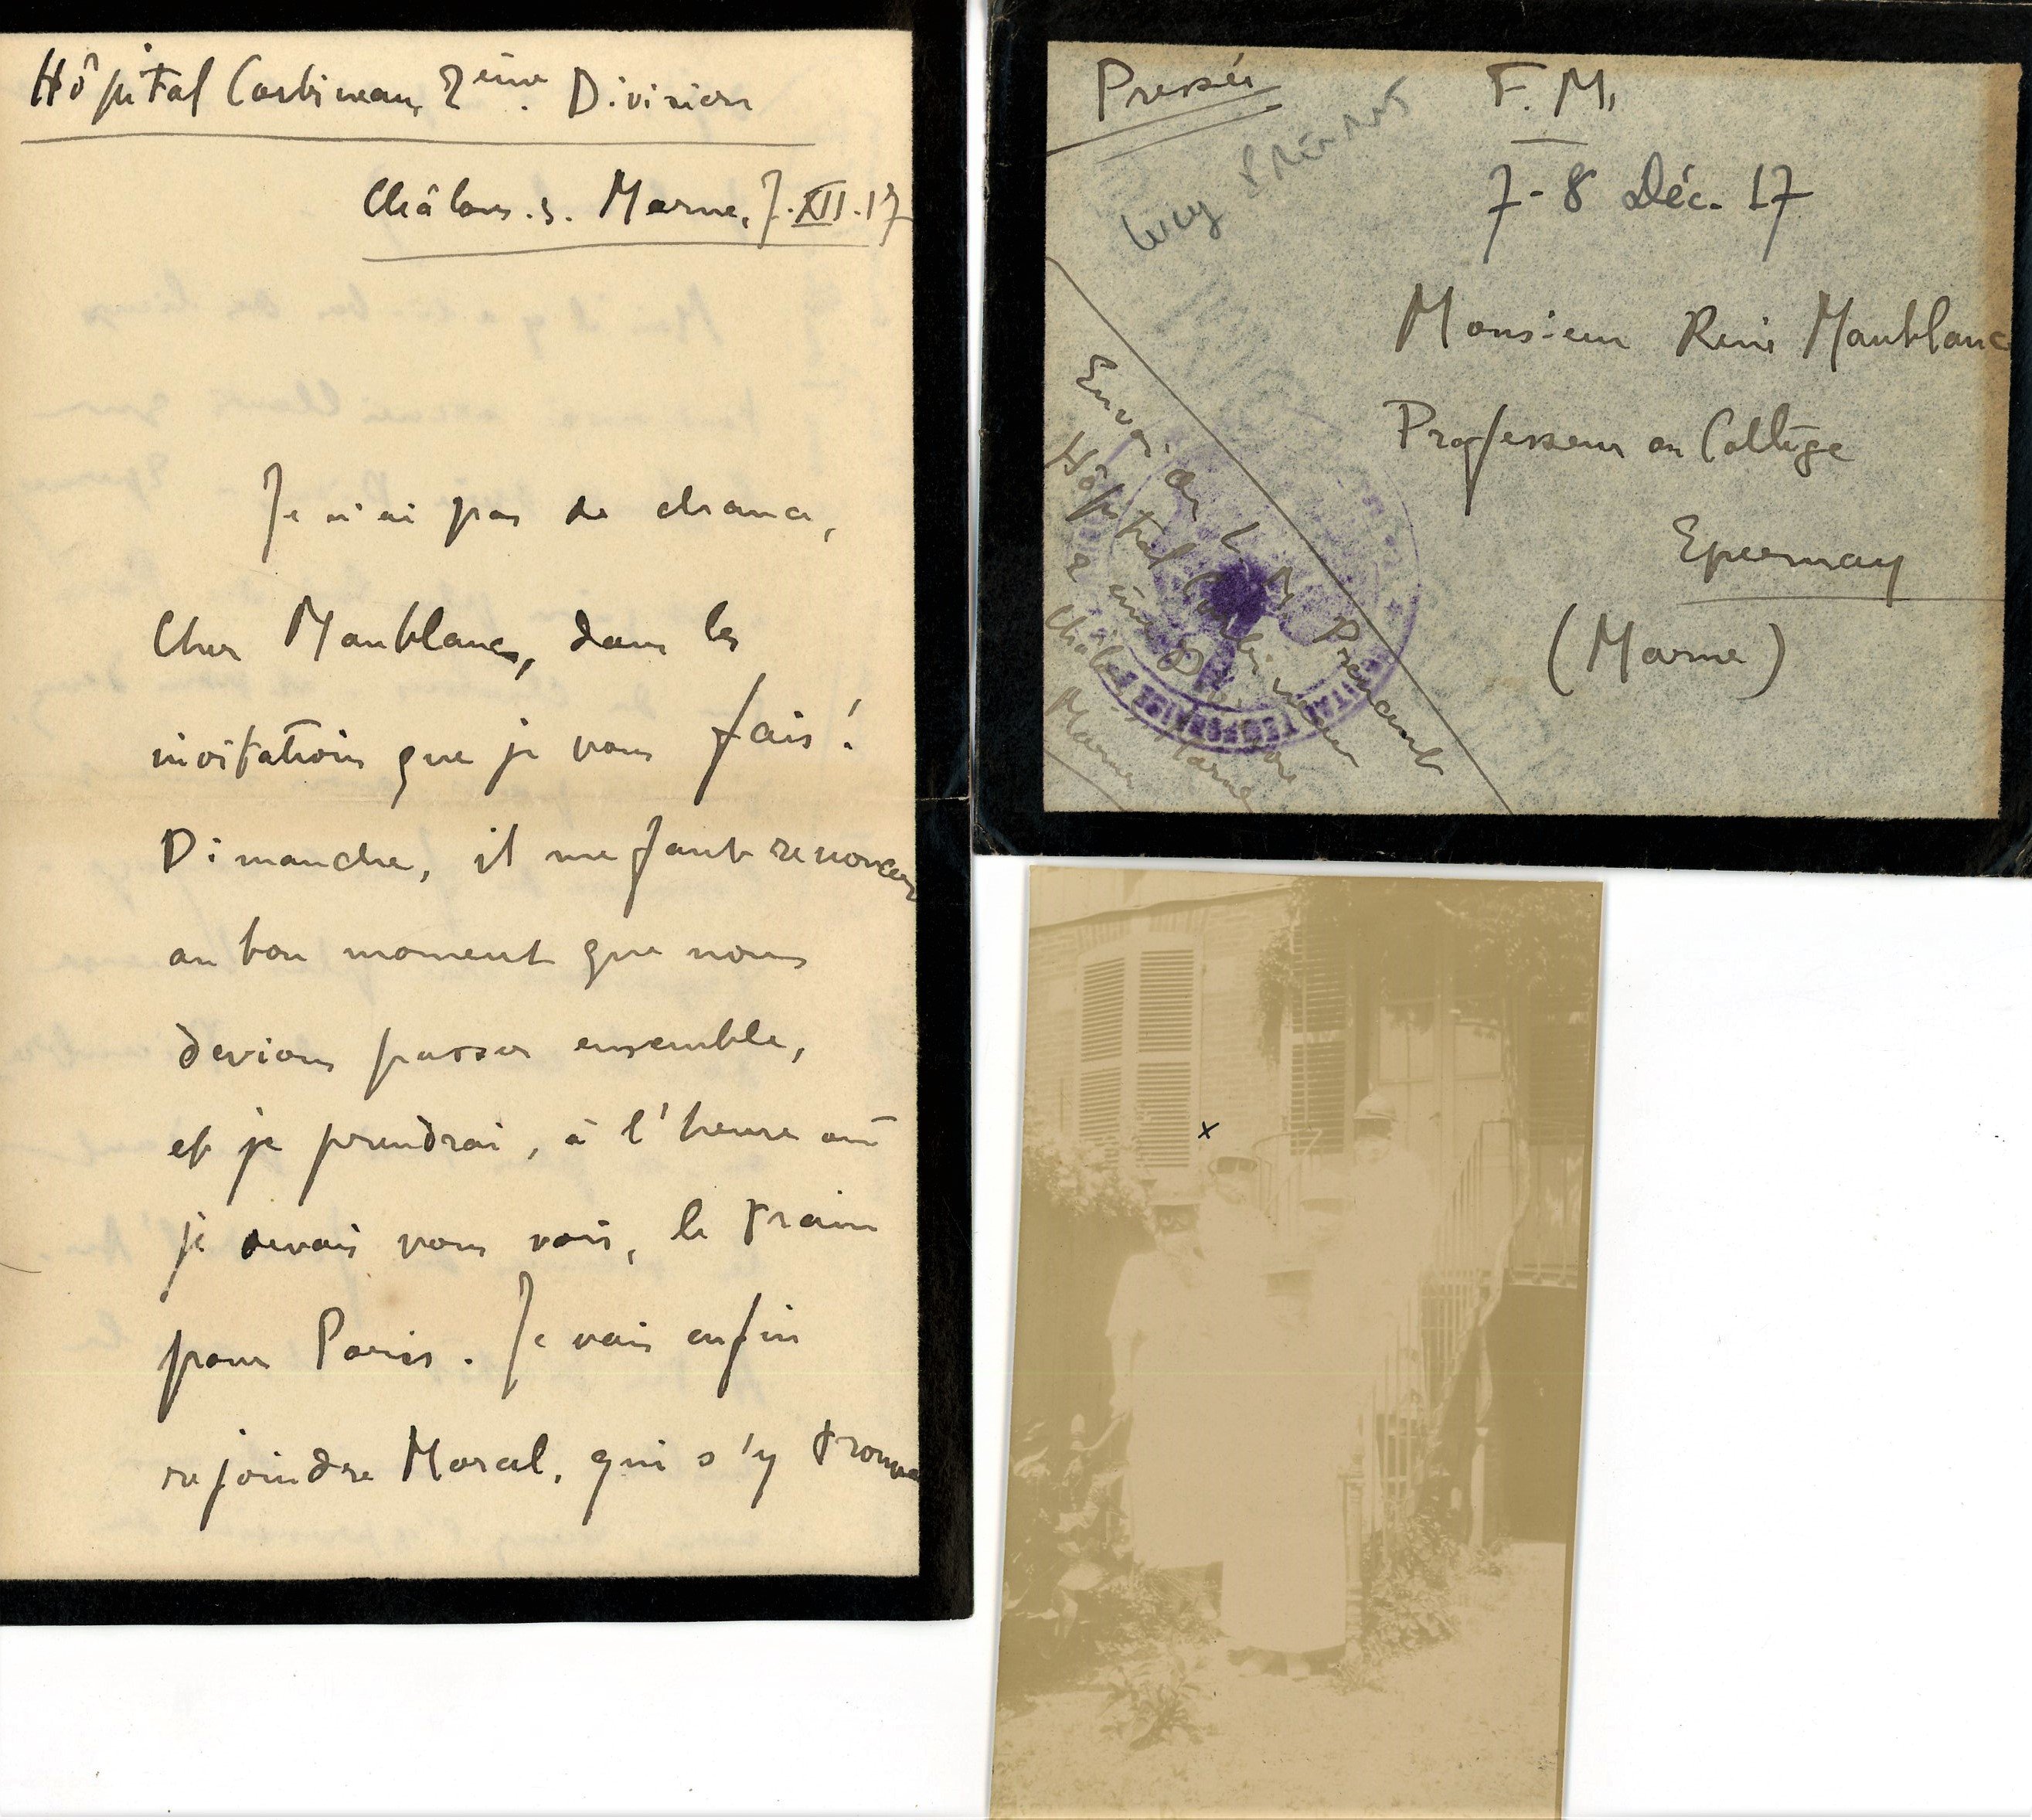 Hôpital Corbineau, 2ème Division
Châlons. s. Marne, 7.XII.17
Je n'ai pas de chance,
Cher Maublanc, dans les
invitations que je vous fais !
Dimanche, il me faut renoncer
au bon moment que nous
devions passer ensemble,
et je prendrai, à l'heure où
je devais vous voir, le train
pour Paris. Je vais enfin
rejoindre Marcel, qui s'y trouve
Pressée
F. M.
7-8 Déc. 17
Monsieur René Maublanc
Professeur au Collège
Epernay
(Marne)
Envoi de L. Prenant
Hôpital Corbineau
2ème Division
Châlons s. Marne
Marne
x